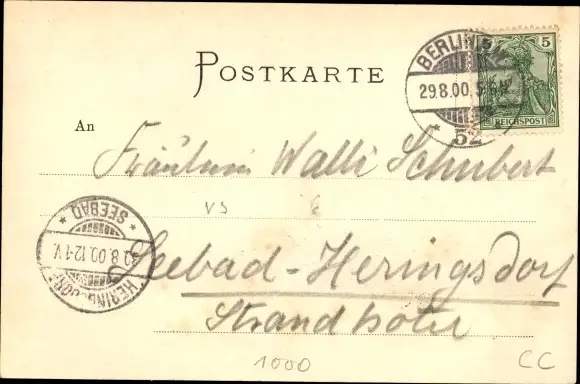 POSTKARTE
BERLIN
29.8.00. 5-6
* 52
5
REICHSPOST
An
Fräulein Walli Schubert
VS
Seebad - Heringsdorf
Strandhotel
* SEEBAD *
8.00.12-1 V.
HERINGSDORF
1000
CC